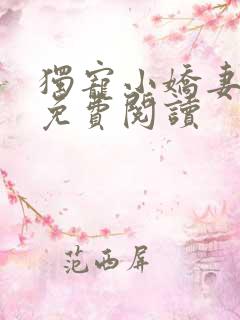 獨寵小嬌妻
免費閱讀
范西屏